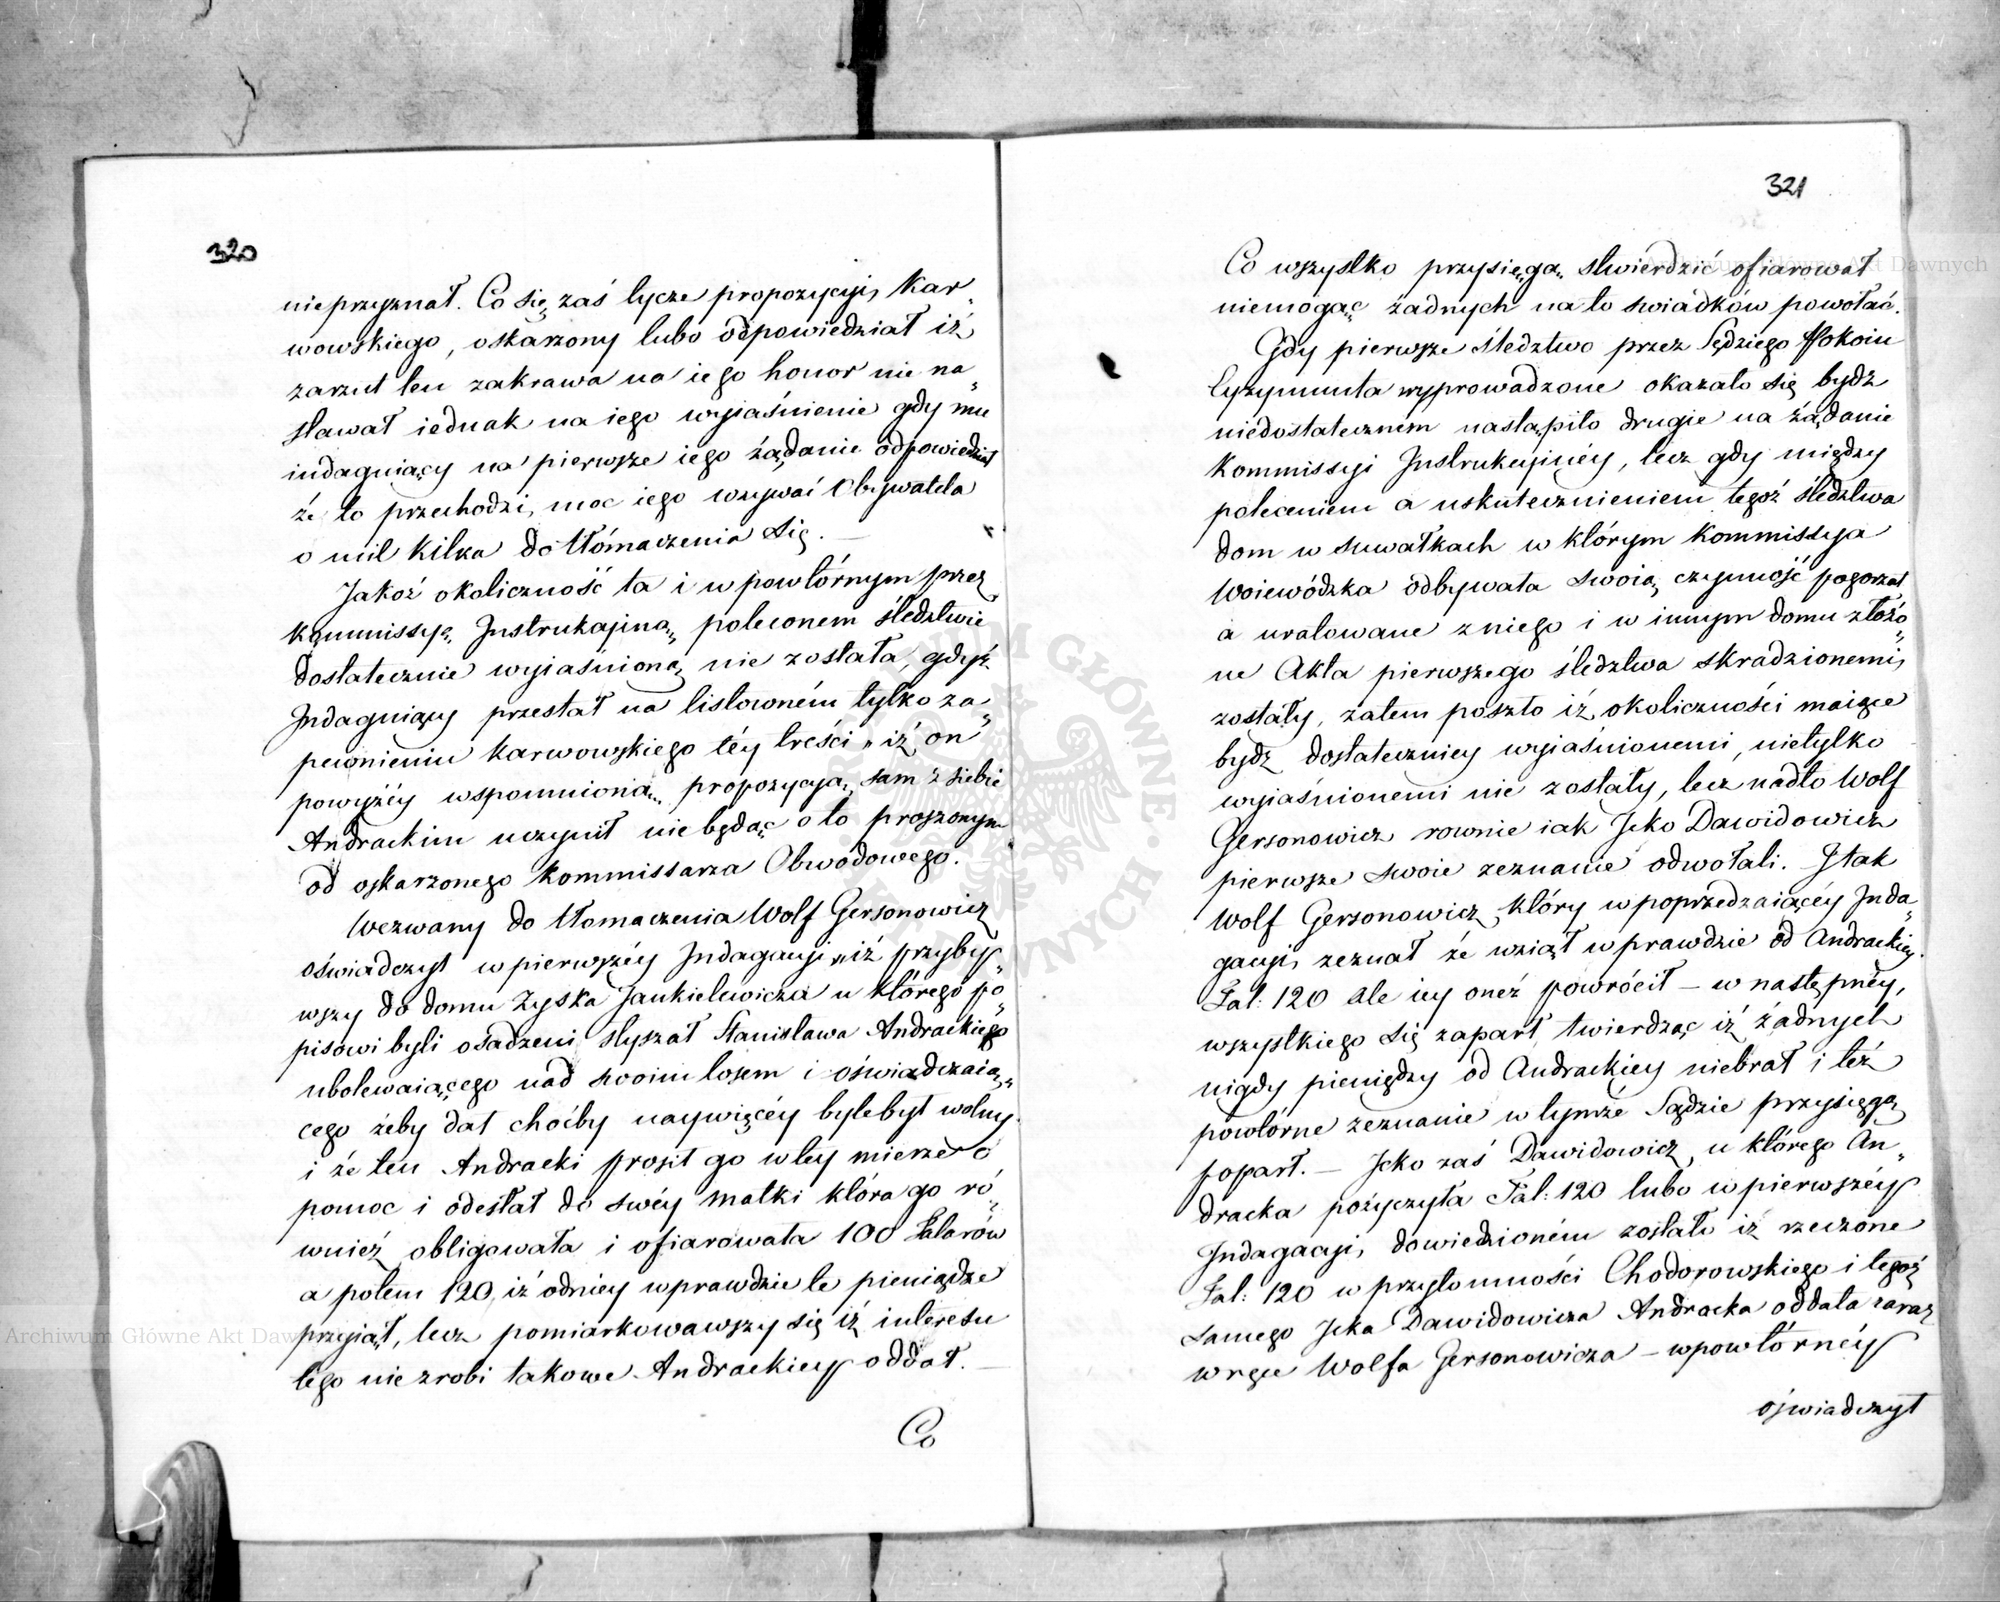 320
nieprzyznał. Co się zaś tycze propozycyi Kar„
wowskiego, oskarzony lubo odpowiedział iż
zarzut ten zakrawa na iego honor nie na„
stawał iednak na iego wyiaśnienie gdy mu
indaguiący na pierwsze iego żądanie odpowiedział
że to przechodzi moc iego wzywać Obywatela
o mil kilka do tłómaczenia się. —
Jakoż okoliczność ta i w powtórnym przez
Kommissyą Instrukcyjną poleconem śledztwie
dostatecznie wyiaśnioną nie została, gdyż
Indaguiący przestał na listowném tylko za„
pewnieniu Karwowskiego téy treści „iż on
powyżéy wspomnioną propozycyą sam z siebie
Andrackim uczynił nie będąc o to proszonym
od oskarzonego Kommissarza Obwodowego. —
Wezwany do tłomaczenia Wolf Gersonowicz
oświadczył w pierwszéy Indagacyi „iż przyby„
wszy do domu Zyska Jankielewicza u którego po„
pisowi byli osadzeni słyszał Stanisława Andrackiego
ubolewaiącego nad swoim losem i oświadczaią„
cego żeby dał choćby naywięcéy byleby był wolny
i że ten Andracki prosił go w tey mierze o
pomoc i odesłał do swéy matki która go ró„
wnież obligowała i ofiarowała 100 Talarów
a potem 120, iż odniéy wprawdzie te pieniądze
przyiął, lecz pomiarkowawszy się iż interesu
tego nie zrobi takowe Andrackiey oddał. —
Co
321
Co wszystko przysięgą stwierdzić ofiarował
niemogąc żadnych na to swiadków powołać.
Gdy pierwsze śledztwo przez Sędziego Pokoiu
Eyzymunta wyprowadzone okazało się bydź
niedostatecznem nastąpiło drugie na żądanie
Kommissyi Instrukcyinéy, lecz gdy między
poleceniem a uskutecznieniem tegoż śledztwa
dom w Suwałkach w którym Kommissya
Woiewódzka odbywała swoią czynność pogorzał
a uratowane z niego i w innym domu złożo„
ne Akta pierwszego śledztwa skradzionemi
zostały, zatem poszło iż okoliczności maiące
bydź dostateczniey wyiaśnionemi, nietylko
wyiaśnionemi nie zostały, lecz nadto Wolf
Gersonowicz rownie iak Jcko Dawidowicz
pierwsze swoie zeznanie odwołali. I tak
Wolf Gersonowicz który w poprzedzaiącéy Inda„
gacyi zeznał że wziął wprawdzie od Andrackiey
Tal: 120 ale iey oneż powrócił — w następnéy,
wszystkiego się zaparł twierdząc iż żadnych
nigdy pieniędzy od Andrackiéy niebrał i też
powtórne zeznanie w tymże Sądzie przysięgą
poparł. — Jcko zaś Dawidowicz, u którego An„
dracka pożyczyła Tal: 120 lubo w pierwszéy
Indagacyi dowiedzioném zostało iż rzeczone
Tal: 120 w przytomności Chodorowskiego i tegoż
samego Jcka Dawidowicza Andracka oddała zaraz
w ręce Wolfa Gersonowicza — w powtórnéy
oświadczył
Archiwum Główne Akt Dawnych